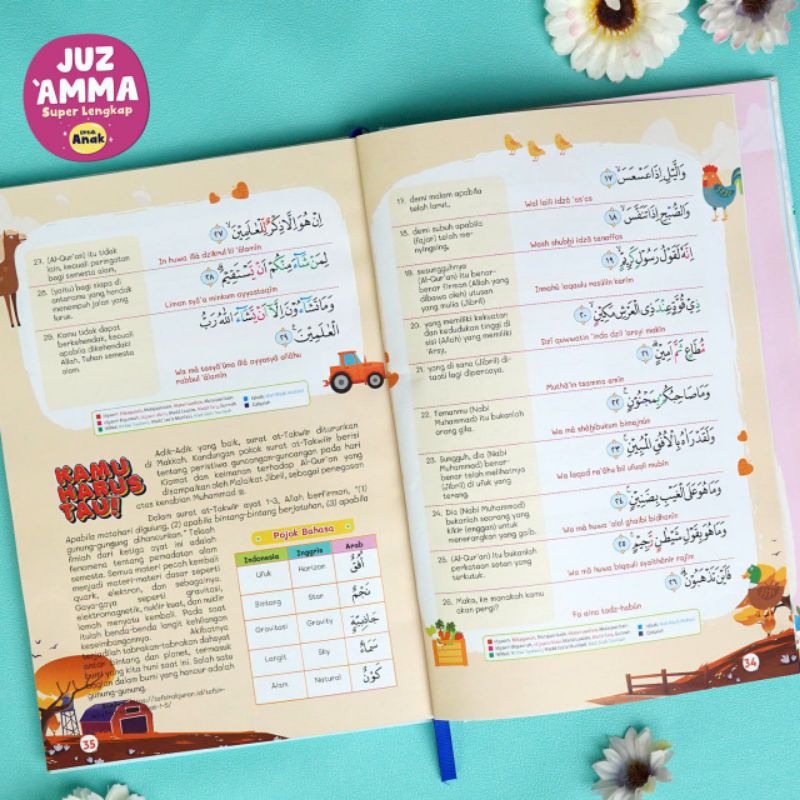 JUZ
'AMMA
Super Lengkap
Untuk
Anak
وَالَّيْلِ اِذَا عَسْعَسَۙ ١٧
17. demi malam apabila
telah larut,
Wal laili idzā 'as'as
وَالصُّبْحِ اِذَا تَنَفَّسَۙ ١٨
18. demi subuh apabila
(fajar) telah me-
nyingsing,
Wash shubḫi idzā tanaffas
اِنَّهٗ لَقَوْلُ رَسُوْلٍ كَرِيْمٍۙ ١٩
19. sesungguhnya
(Al-Qur'an) itu benar-
benar firman (Allah yang
dibawa oleh) utusan
yang mulia (Jibril)
Innahū laqaulu rasūlin karīm
ذِيْ قُوَّةٍ عِنْدَ ذِى الْعَرْشِ مَكِيْنٍۙ ٢٠
20. yang memiliki kekuatan
dan kedudukan tinggi di
sisi (Allah) yang memiliki
'Arsy,
Dzī quwwatin 'inda dzil 'arsyi makīn
مُّطَاعٍ ثَمَّ اَمِيْنٍۗ ٢١
21. yang di sana (Jibril) di-
taati lagi dipercaya.
Muthā'in tsamma amīn
وَمَا صَاحِبُكُمْ بِمَجْنُوْنٍۚ ٢٢
22. Temanmu (Nabi
Muhammad) itu bukanlah
orang gila.
Wa mā shāḫibukum bimajnūn
وَلَقَدْ رَاٰهُ بِالْاُفُقِ الْمُبِيْنِۚ ٢٣
23. Sungguh, dia (Nabi
Muhammad) benar-
benar telah melihatnya
(Jibril) di ufuk yang
terang.
Wa laqad ra'āhu bil ufuqil mubīn
وَمَا هُوَ عَلَى الْغَيْبِ بِضَنِيْنٍۚ ٢٤
24. Dia (Nabi Muhammad)
bukanlah seorang yang
kikir (enggan) untuk
menerangkan yang gaib.
Wa mā huwa 'alal ghaibi bidhanīn
وَمَا هُوَ بِقَوْلِ شَيْطٰنٍ رَّجِيْمٍۚ ٢٥
25. (Al-Qur'an) itu bukanlah
perkataan setan yang
terkutuk.
Wa mā huwa biqauli syaithānir rajīm
فَاَيْنَ تَذْهَبُوْنَۗ ٢٦
26. Maka, ke manakah kamu
akan pergi?
Fa aina tadz-habūn
34
اِنْ هُوَ اِلَّا ذِكْرٌ لِّلْعٰلَمِيْنَۙ ٢٧
27. (Al-Qur'an) itu tidak
lain, kecuali peringatan
bagi semesta alam,
In huwa illā dzikrul lil 'ālamīn
لِمَنْ شَاۤءَ مِنْكُمْ اَنْ يَّسْتَقِيْمَۗ ٢٨
28. (yaitu) bagi siapa di
antaramu yang hendak
menempuh jalan yang
lurus.
Liman syā'a minkum ayyastaqīm
وَمَا تَشَاۤءُوْنَ اِلَّآ اَنْ يَّشَاۤءَ اللّٰهُ رَبُّ
الْعٰلَمِيْنَ ٢٩
29. Kamu tidak dapat
berkehendak, kecuali
apabila dikehendaki
Allah, Tuhan semesta
alam.
Wa mā tasyā'ūna illā ayyasyā allāhu
rabbul 'ālamīn
KAMU
HARUS
TAU!
Adik-Adik yang baik, surat at-Takwīr diturunkan
di Makkah. Kandungan pokok surat at-Takwīr berisi
tentang peristiwa guncangan-guncangan pada hari
Kiamat dan keimanan terhadap Al-Qur'an yang
disampaikan oleh Malaikat Jibril, sebagai penegasan
atas kenabian Muhammad ﷺ.
Dalam surat at-Takwīr ayat 1-3, Allah berfirman, "(1)
Apabila matahari digulung, (2) apabila bintang-bintang berjatuhan, (3) apabila
gunung-gunung dihancurkan." Tekoh
ilmiah dari ketiga ayat ini adalah
fenomena tentang pemadatan alam
semesta. Semua materi pecah kembali
menjadi materi-materi dasar seperti
quark, elektron, dan sebagainya.
Gaya-gaya seperti gravitasi,
elektromagnetik, nuklir kuat, dan nuklir
lemah menyatu kembali. Pada saat
itulah benda-benda langit kehilangan
keseimbangannya. Akibatnya
terjadilah tabrakan-tabrakan dahsyat
antar bintang dan planet, termasuk
bumi yang kita huni saat ini. Salah satu
bagian dalam bumi yang hancur adalah
gunung-gunung.
Pojok Bahasa
Indonesia Inggris Arab
Ufuk Horizon أُفُقٌ
Bintang Star نَجْمٌ
Gravitasi Gravity جَاذِبِيَّةٌ
Langit Sky سَمَاءٌ
Alam Natural كَوْنٌ
35